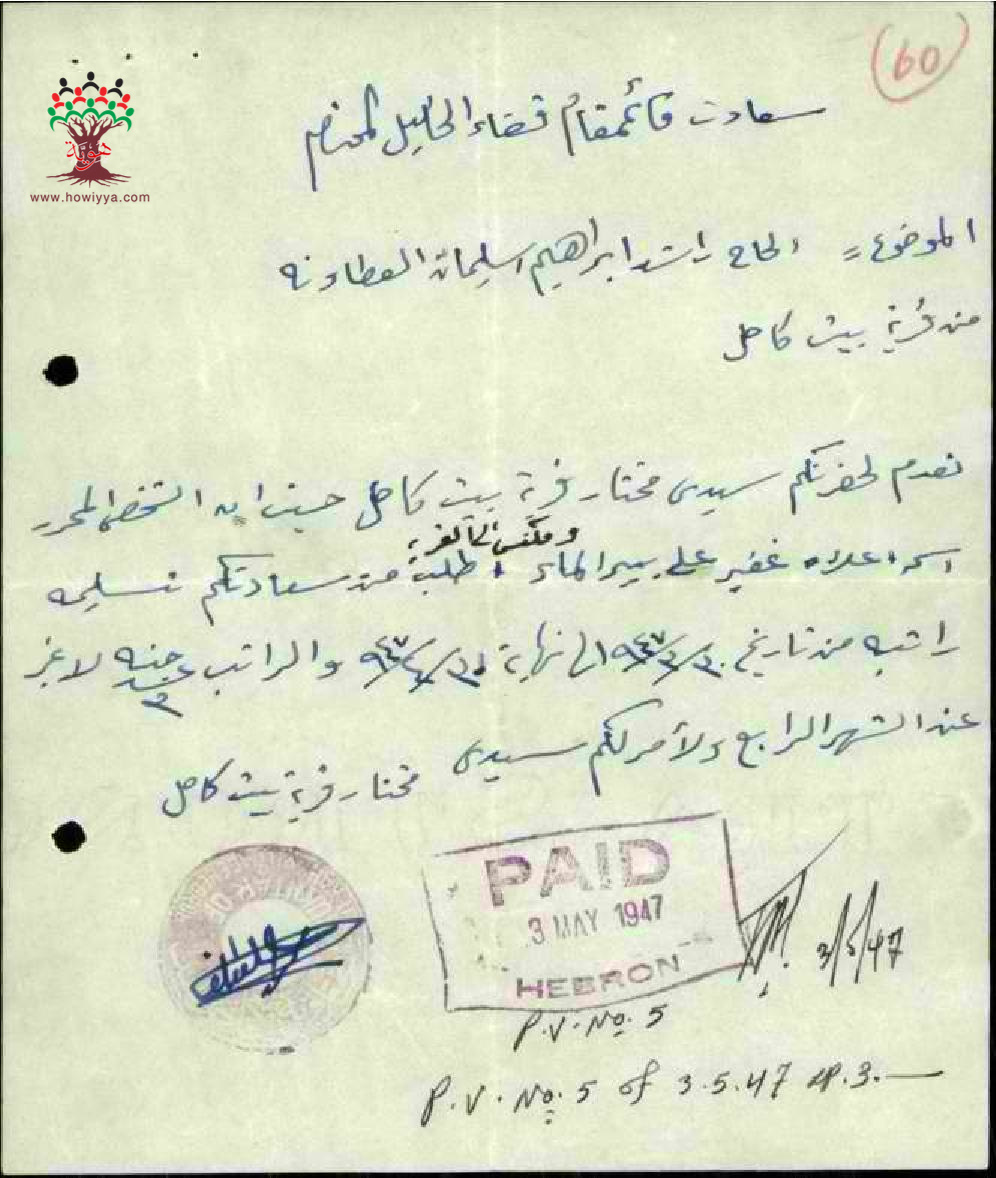 (60)
هوية
www.howiyya.com
سعادت قائمقام قضاء الخليل المحترم
الموضوع = الحاج راشد ابراهيم اسليمان العطاونه
من قرية بيت كاحل
نقدم لحضرتكم سيدي مختار قرية بيت كاحل حيث ان الشخص المحرر
اسمه اعلاه غفير على بير الماء اطلب من سعادتكم تسليمه
راتبه من تاريخ الى نهاية والراتب جنيه لا غير
عن الشهر الرابع ولأمركم سيدي
مختار قرية بيت كاحل
PAID
3 MAY 1947
HEBRON
3/5/47
P.V. No. 5
P.V. No. 5 of 3.5.47 LP.3.—